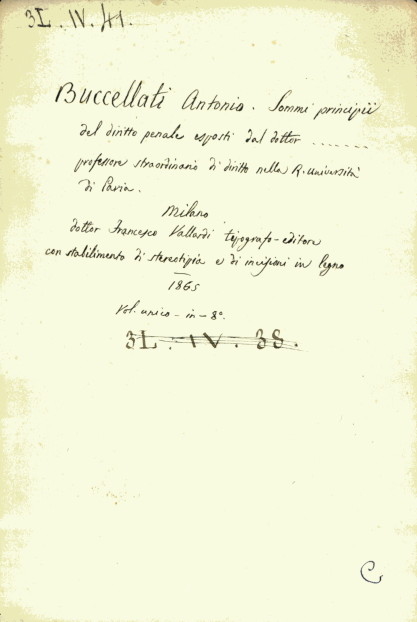 3L. IV. 41.
Buccellati Antonio. Sommi principii
del diritto penale esposti dal dottor .......
professore straordinario di diritto nella R. Università
di Pavia.
Milano
dottor Francesco Vallardi tipografo-editore
con stabilimento di stereotipia e di incisioni in legno
1865
Vol. unico - in - 8°.
3L. IV. 38.
C